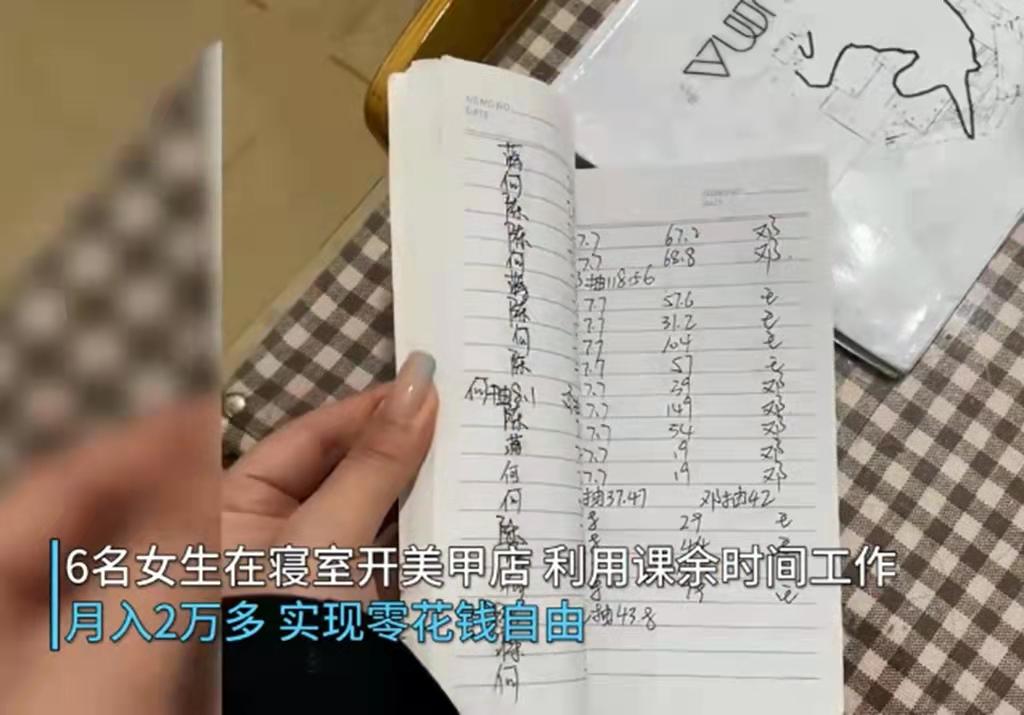 MEMO NO.
DATE
蒋
何
陈
陈
何
蒋
陈
何
陈
何抽8.1 邓
陈
蒋
何
何
陈
何
7.7 67.2 邓
7.7 68.8 邓
抽118.56
7.7 57.6 毛
7.7 31.2 毛
7.7 104 毛
7.7 57 毛
7.7 39 邓
7.7 149 邓
7.7 54 邓
7.7 19 邓
7.7 19 邓
抽37.47 邓抽42
29 毛
抽43.8
6名女生在寝室开美甲店 利用课余时间工作
月入2万多 实现零花钱自由